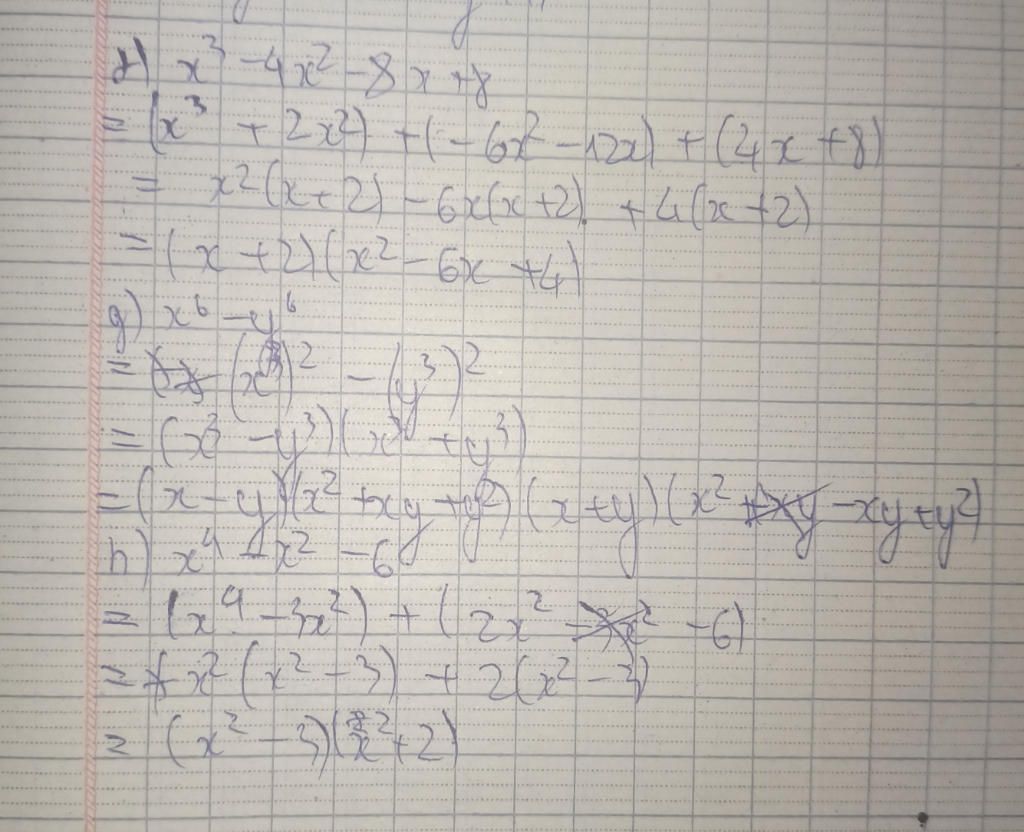 f) x³ - 4x² - 8x + 8
= (x³ + 2x²) + (- 6x² - 12x) + (4x + 8)
= x²(x + 2) - 6x(x + 2) + 4(x + 2)
= (x + 2)(x² - 6x + 4)
g) x⁶ - y⁶
= (x³)² - (y³)²
= (x³ - y³)(x³ + y³)
= (x - y)(x² + xy + y²)(x + y)(x² - xy + y²)
h) x⁴ - x² - 6
= (x⁴ - 3x²) + (2x² - 6)
= x²(x² - 3) + 2(x² - 3)
= (x² - 3)(x² + 2)